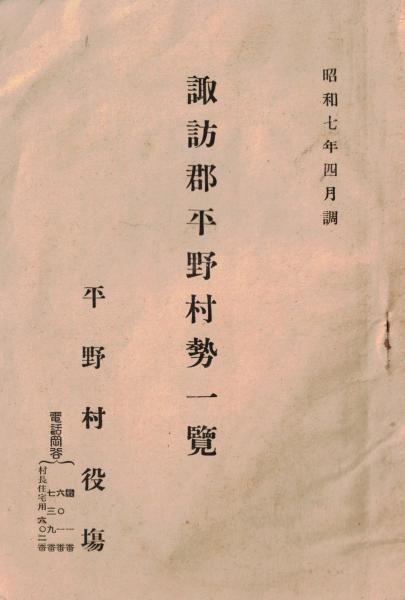 昭和七年四月調
諏訪郡平野村勢一覽
平野村役場
電話岡谷
一一番
六〇一番
七三九番
村長住宅用 六〇二番